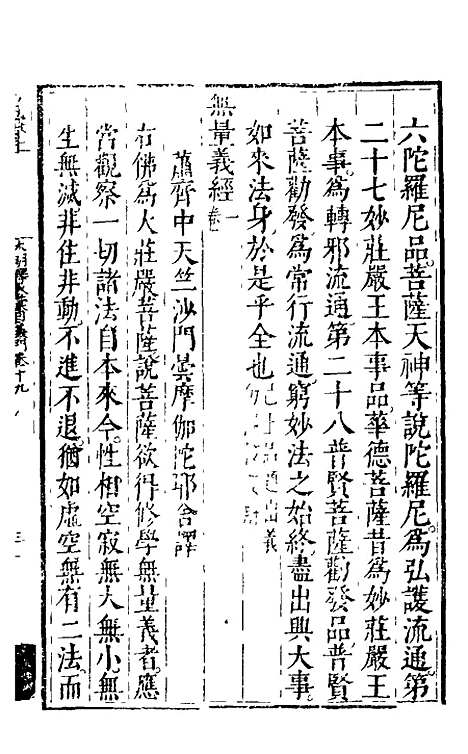 六陀羅尼品。菩薩天神等說陀羅尼。爲弘護流通。第
二十七妙莊嚴王本事品。華德菩薩昔爲妙莊嚴王
本事。爲轉邪流通。第二十八普賢菩薩勸發品。普賢
菩薩勸發。爲常行流通。窮妙法之始終。盡出興大事。
如來法身。於是乎全也
無量義經一卷
蕭齊中天竺沙門曇摩伽陀耶舍譯
右佛爲大莊嚴菩薩說。菩薩欲得修學無量義者。應
當觀察一切諸法。自本來今。性相空寂。無大無小。無
生無滅。非住非動。不進不退。猶如虛空。無有二法。而
卷十九
三